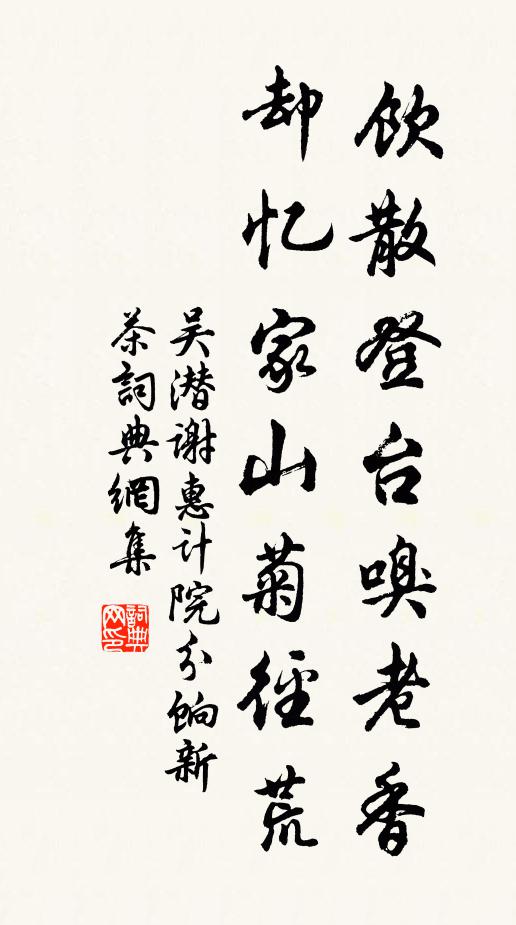 飲散登台嗅老香
却忆家山菊徑荒
吴潜谢惠计院分餉新
茶詞典網集
詞典
网印